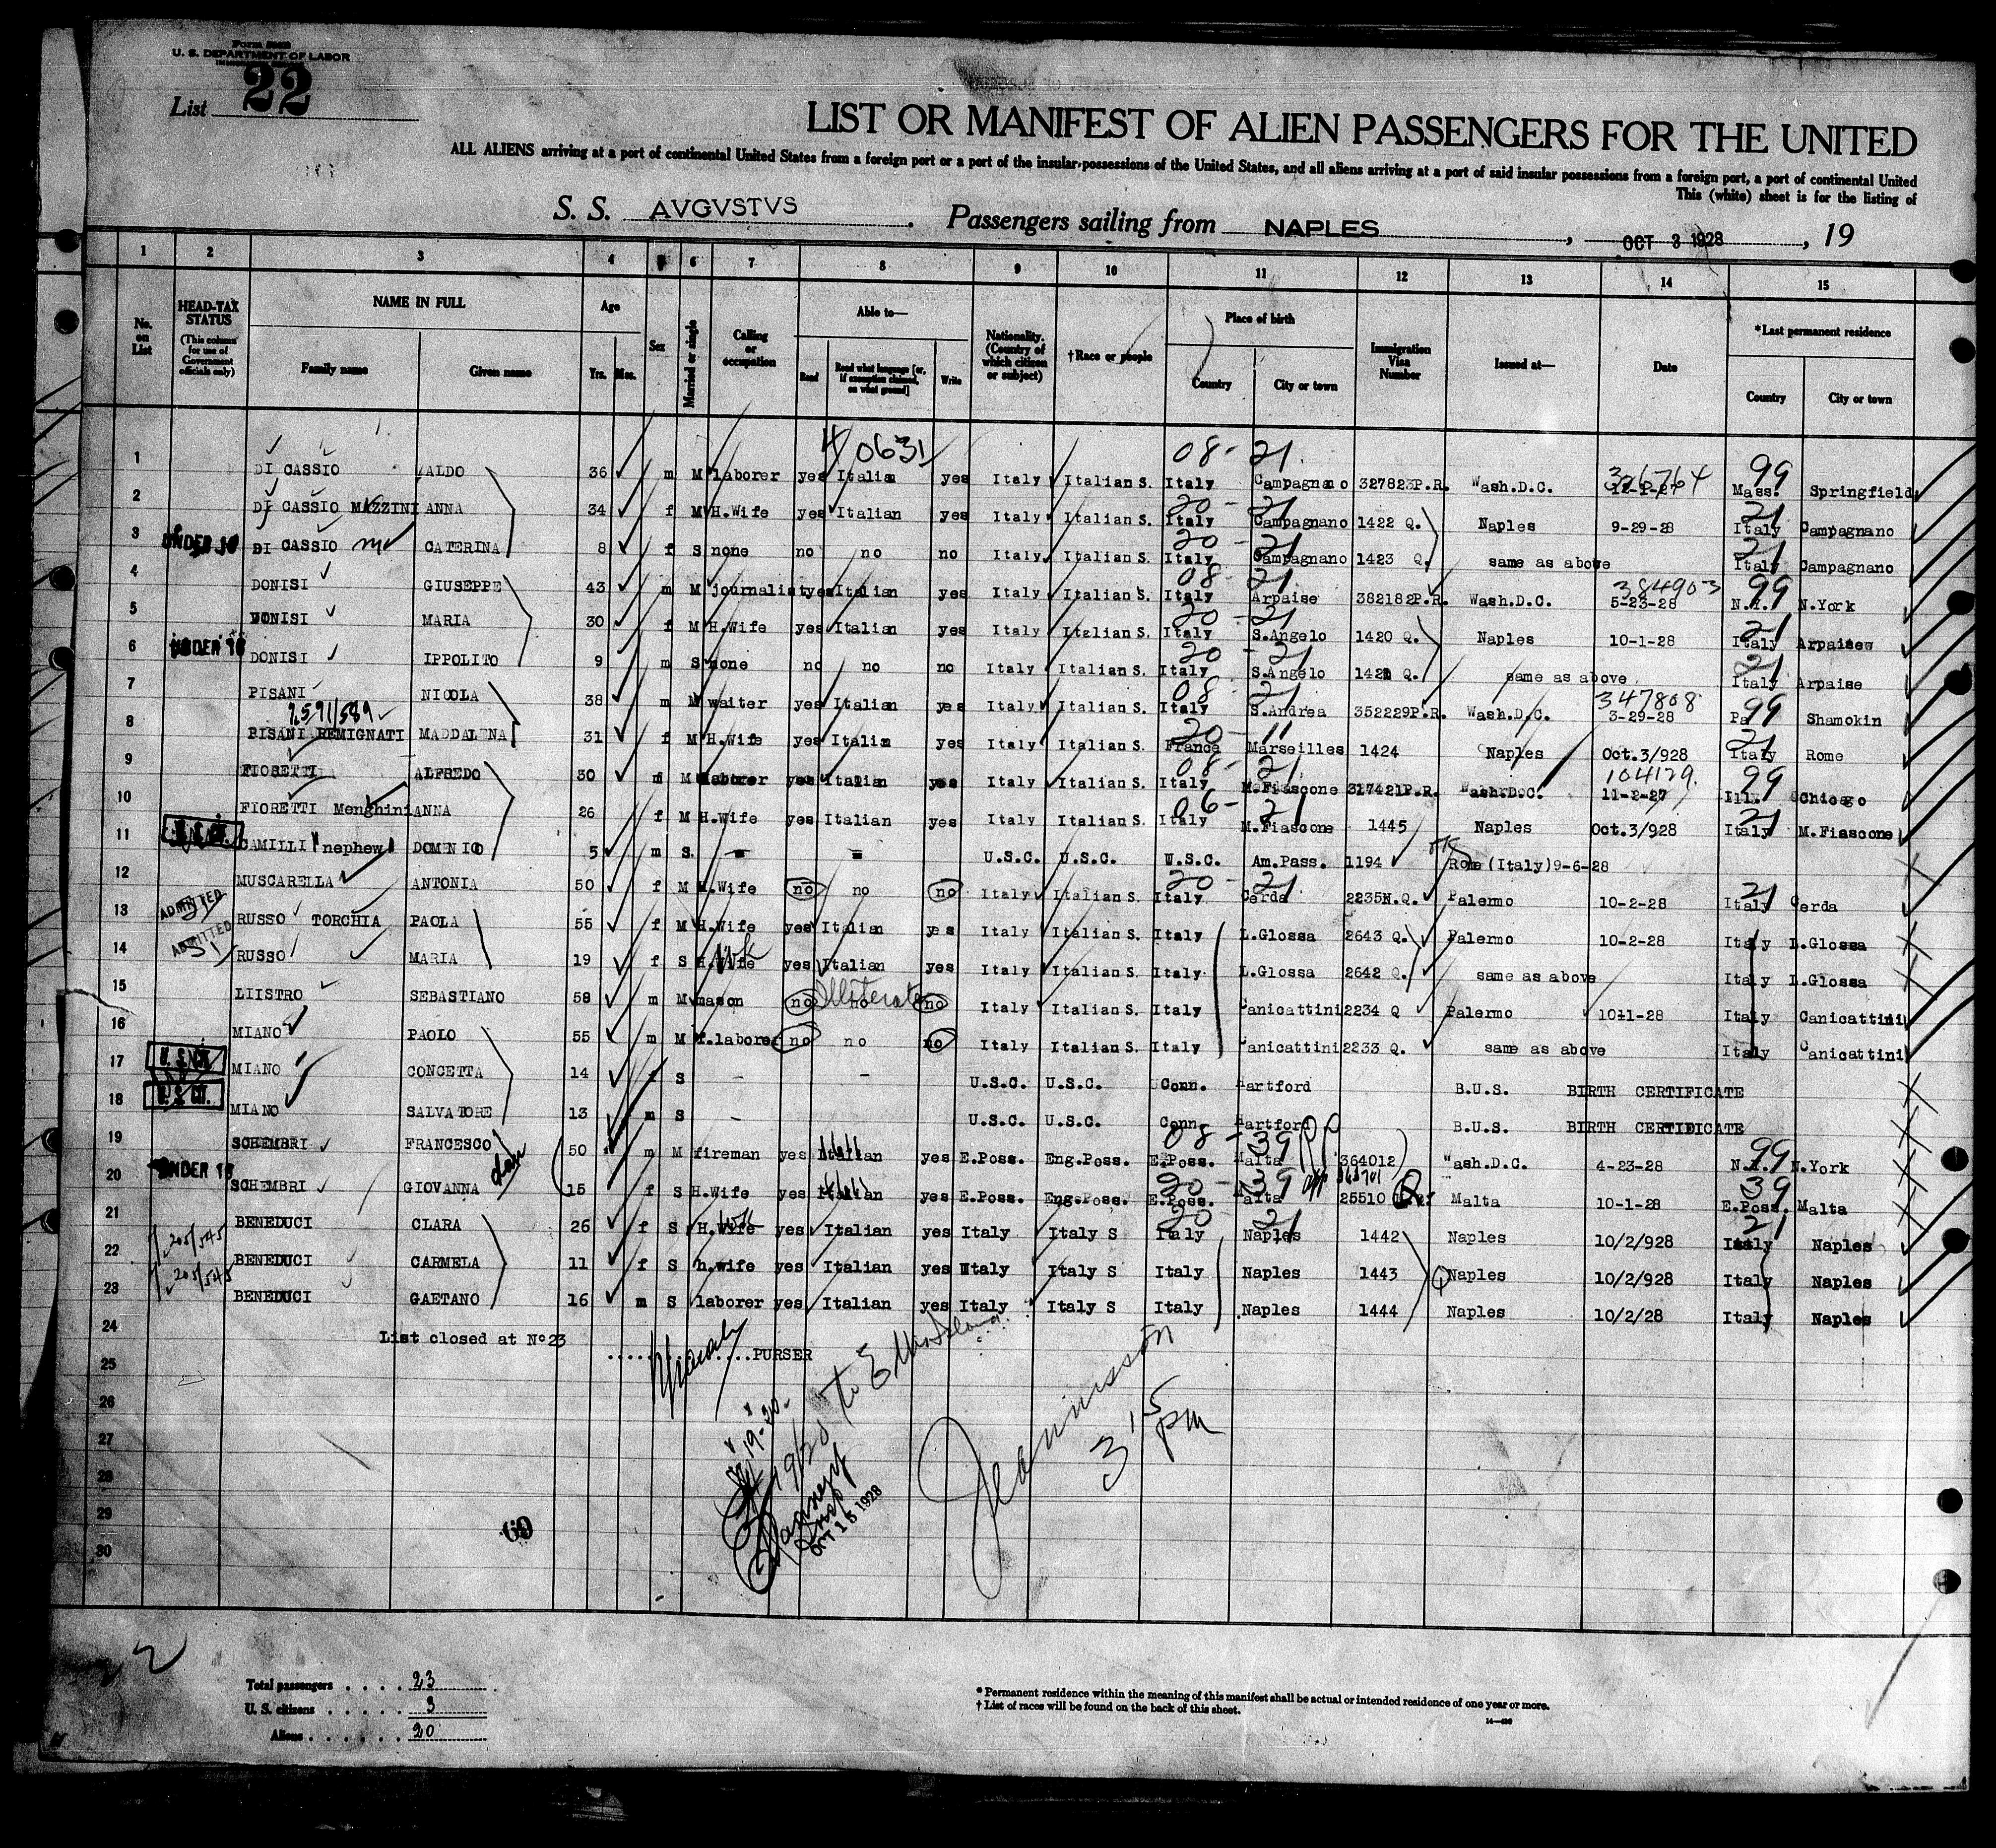 Form
U. S. DEPARTMENT OF LABOR
List 22
LIST OR MANIFEST OF ALIEN PASSENGERS FOR THE UNITED
ALL ALIENS arriving at a port of continental United States from a foreign port or a port of the insular possessions of the United States, and all aliens arriving at a port of said insular possessions from a foreign port, a port of continental United
This (white) sheet is for the listing of
S. S. AVGVSTVS. Passengers sailing from NAPLES, OCT 3 1928, 19
1 2 3 4 6 7 8 9 10 11 12 13 14 15
No. on List
HEAD-TAX STATUS (This column for use of Government officials only)
NAME IN FULL
Family name Given name
Age
Yrs. Mos.
Sex
Married or single
Calling or occupation
Able to—
Read Read what language [or, if exemption claimed, on what ground] Write
Nationality. (Country of which citizen or subject)
†Race or people
Place of birth
Country City or town
Immigration Visa Number
Issued at—
Date
*Last permanent residence
Country City or town
40631 08-21 326764 99
1 DI CASSIO ALDO 36 m M laborer yes Italian yes Italy Italian S. Italy Campagnano 327823P.R. Wash.D.C. Mass. Springfield
20-21 21
2 DI CASSIO MAZZINI ANNA 34 f M H.Wife yes Italian yes Italy Italian S. Italy Campagnano 1422 Q. Naples 9-29-28 Italy Campagnano
20-21 21
3 UNDER 16 DI CASSIO CATERINA 8 f S none no no no Italy Italian S. Italy Campagnano 1423 Q. same as above Italy Campagnano
08-21 384903 99
4 DONISI GIUSEPPE 43 m M journalist yes Italian yes Italy Italian S. Italy Arpaise 382182P.R. Wash.D.C. 5-23-28 N.Y. N.York
20-21 21
5 DONISI MARIA 30 f M H.Wife yes Italian yes Italy Italian S. Italy S.Angelo 1420 Q. Naples 10-1-28 Italy Arpaisew
20-21 21
6 UNDER 16 DONISI IPPOLITO 9 m S none no no no Italy Italian S. Italy S.Angelo 1421 Q. same as above Italy Arpaise
08-21 347808 99
7 PISANI NICOLA 38 m M waiter yes Italian yes Italy Italian S. Italy S.Andrea 352229P.R. Wash.D.C. 3-29-28 Pa Shamokin
20-11 21
8 PISANI REMIGNATI MADDALENA 31 f M H.Wife yes Italian yes Italy Italian S. France Marseilles 1424 Naples Oct.3/928 Italy Rome
08-21 104179 99
9 FIORETTI ALFREDO 30 m M laborer yes Italian yes Italy Italian S. Italy M.Fiascone 317421P.R. Wash.D.C. 11-2-27 Ill. Chicago
06-21 21
10 FIORETTI Menghini ANNA 26 f M H.Wife yes Italian yes Italy Italian S. Italy M.Fiascone 1445 Naples Oct.3/928 Italy M.Fiascone
11 CAMILLI "nephew" DOMENICO 5 m S. - = U.S.C. U.S.C. U.S.C. Am.Pass. 1194 Rome (Italy) 9-6-28
20-21 21
12 MUSCARELLA ANTONIA 50 f M H.Wife no no no Italy Italian S. Italy Cerda 2235N.Q. Palermo 10-2-28 Italy Cerda
13 ADMITTED RUSSO TORCHIA PAOLA 55 f M H.Wife yes Italian yes Italy Italian S. Italy L.Glossa 2643 Q. Palermo 10-2-28 Italy L.Glossa
14 ADMITTED RUSSO MARIA 19 f S H.Wife yes Italian yes Italy Italian S. Italy L.Glossa 2642 Q. same as above Italy L.Glossa
15 LIISTRO SEBASTIANO 58 m M mason no Illiterate no no Italy Italian S. Italy Canicattini 2234 Q Palermo 10-1-28 Italy Canicattini
16 MIANO PAOLO 55 m M f.laborer no no no Italy Italian S. Italy Canicattini 2233 Q. same as above Italy Canicattini
17 U.S. CIT. MIANO CONCETTA 14 f S - - U.S.C. U.S.C. Conn. Hartford B.U.S. BIRTH CERTIFICATE
18 U.S. CIT. MIANO SALVATORE 13 m S - U.S.C. U.S.C. Conn. Hartford B.U.S. BIRTH CERTIFICATE
08-39 PP 99
19 SCHEMBRI FRANCESCO 50 m M fireman yes Italian yes E.Poss. Eng.Poss. E.Poss. Malta 364012 Wash.D.C. 4-23-28 N.Y. N.York
20-39 39
20 UNDER 16 SCHEMBRI GIOVANNA 15 f S H.Wife yes Italian yes E.Poss. Eng.Poss. E.Poss. Malta 25510 Malta 10-1-28 E.Poss. Malta
20 21 21
21 BENEDUCI CLARA 26 f S H.Wife yes Italian yes Italy Italy S Italy Naples 1442 Naples 10/2/928 Italy Naples
22 BENEDUCI CARMELA 11 f S h.wife yes Italian yes Italy Italy S Italy Naples 1443 Naples 10/2/928 Italy Naples
23 BENEDUCI GAETANO 16 m S laborer yes Italian yes Italy Italy S Italy Naples 1444 Naples 10/2/28 Italy Naples
24 List closed at No 23
25 PURSER
26
27
28
29
30
to Ellis Island
19-20
3 15 pm
OCT 15 1928
60
2
Total passengers . . . . 23
U. S. citizens . . . . . 3
Aliens . . . . . . 20
* Permanent residence within the meaning of this manifest shall be actual or intended residence of one year or more.
† List of races will be found on the back of this sheet.